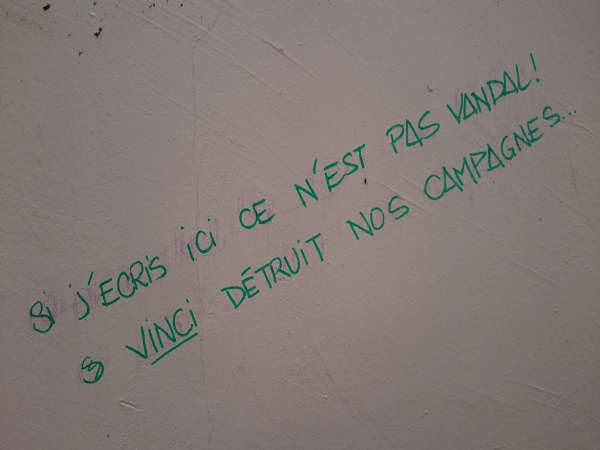 Si j'ECRIS ici CE N'EST PAS VANDAL!
& VINCI DÉTRUIT NOS CAMPAGNES...